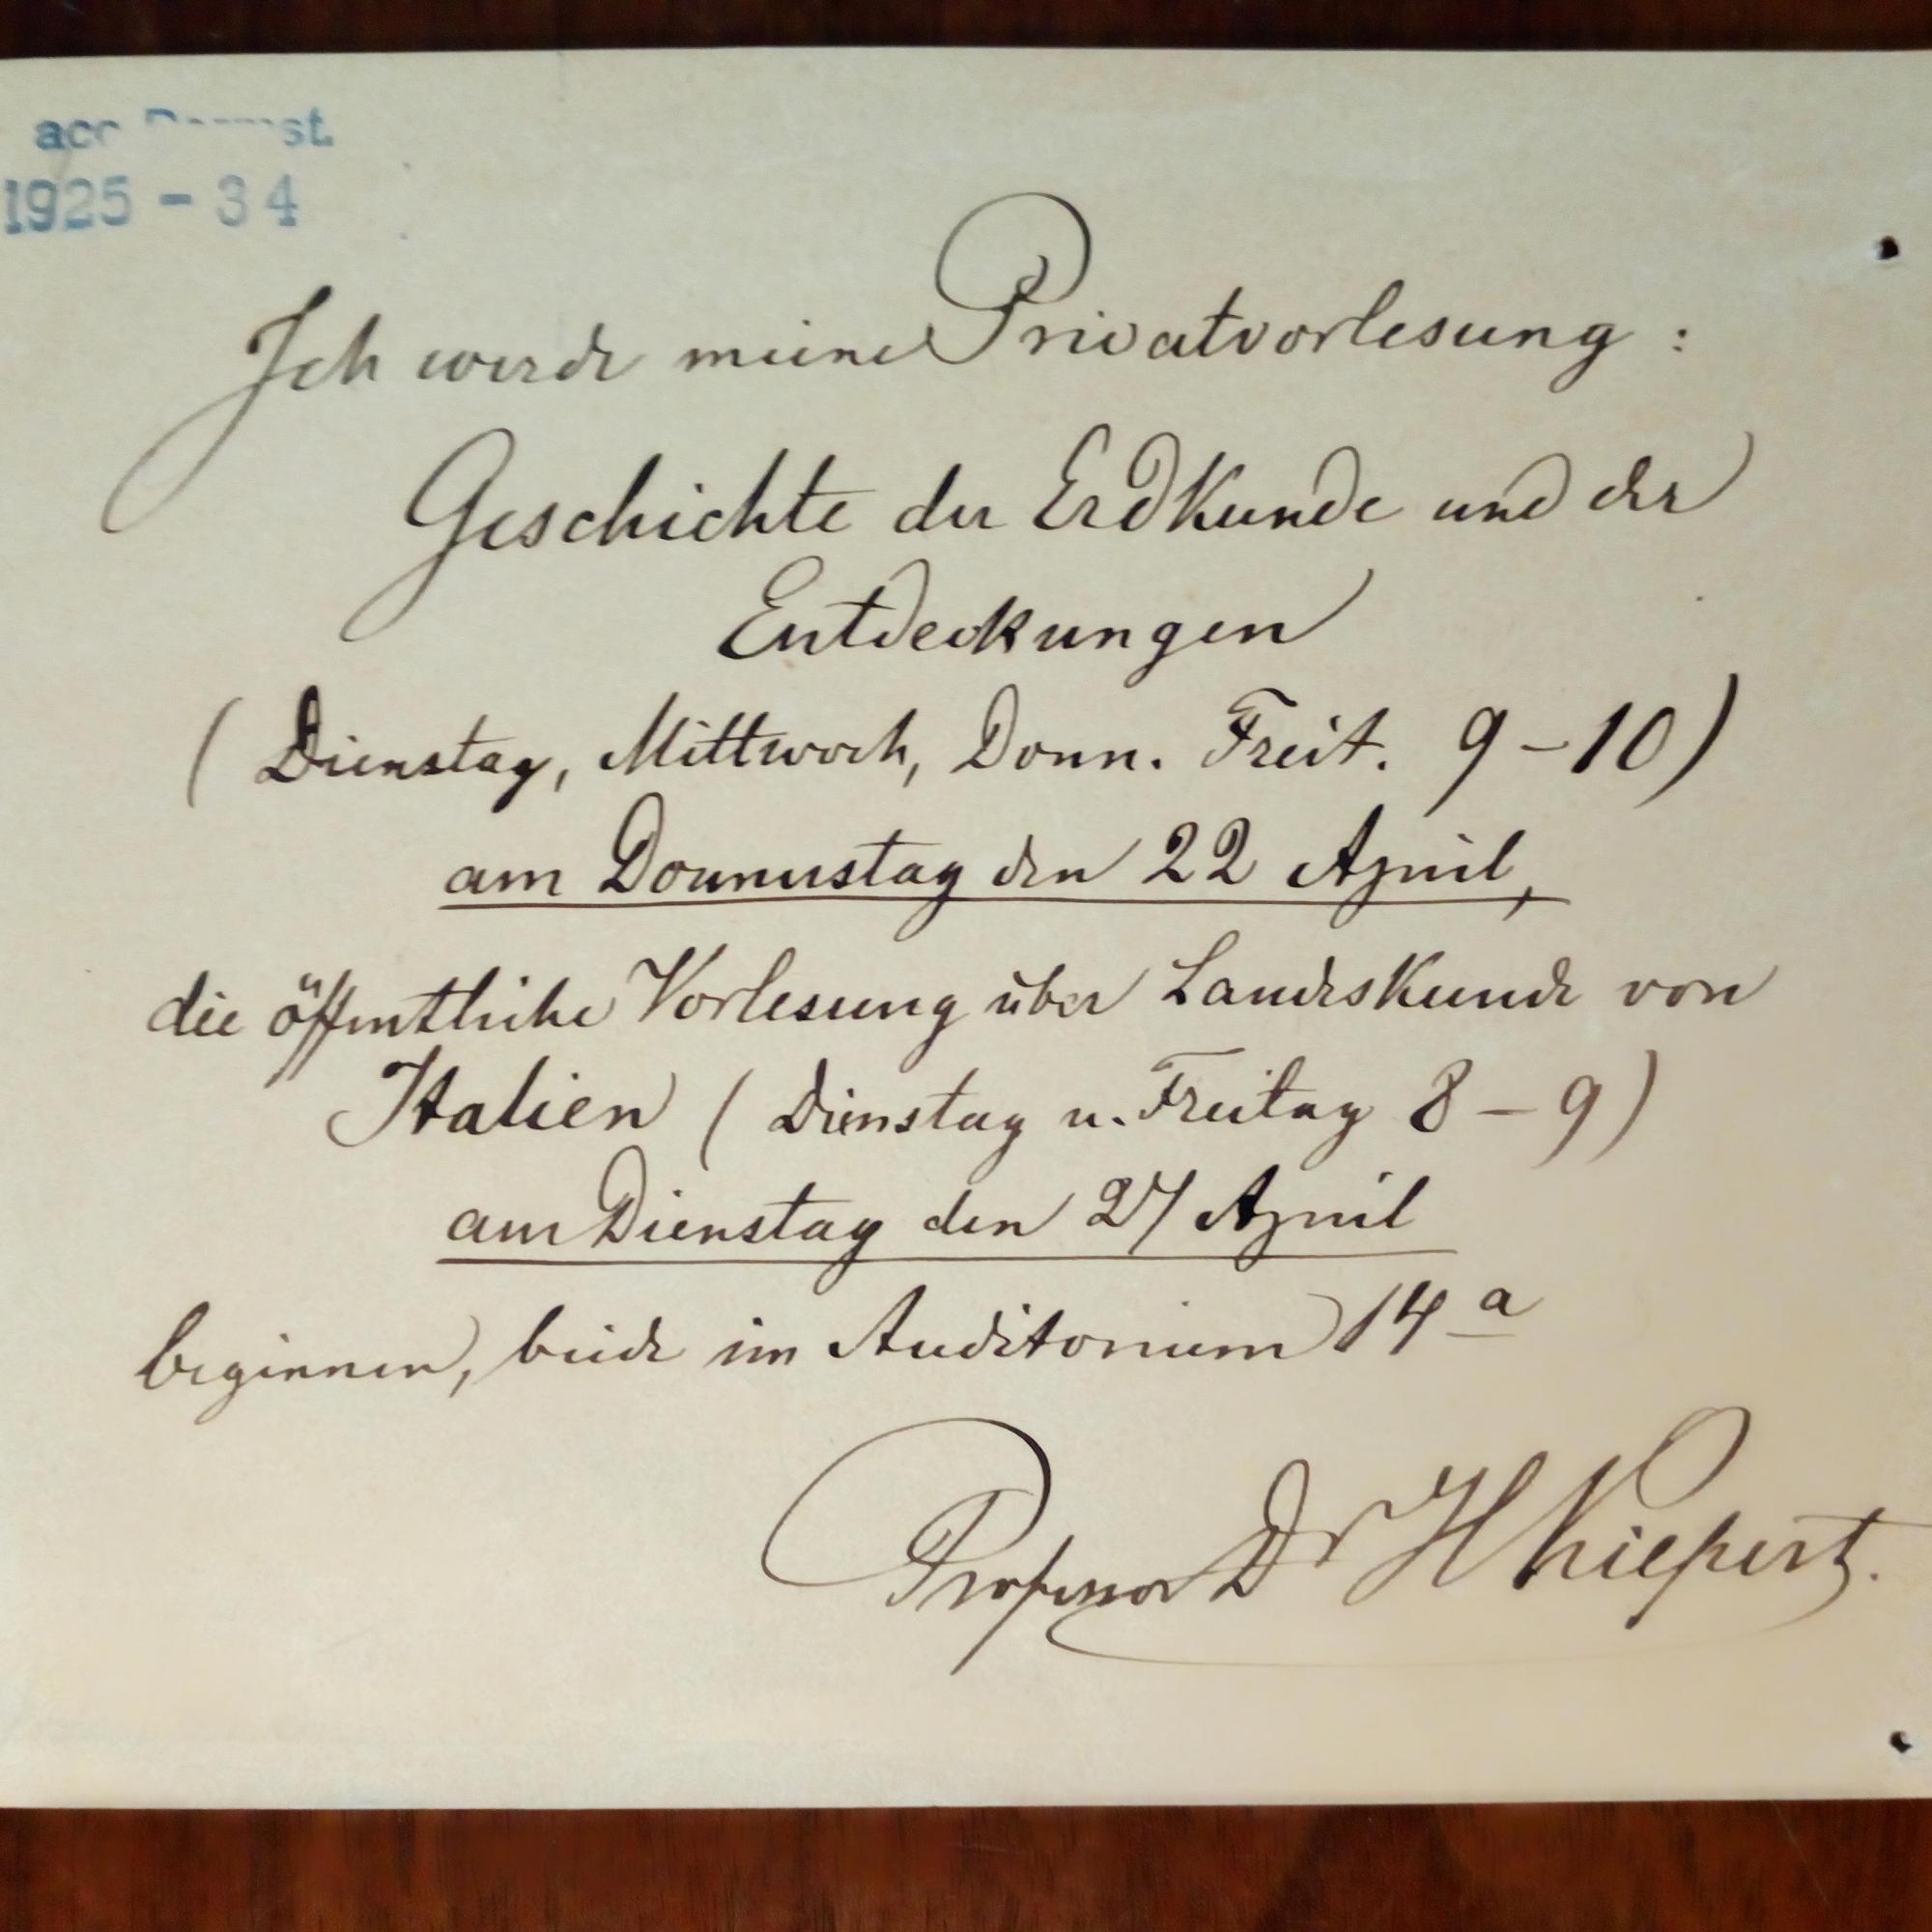 acc
1925 - 34
Ich werde meine Privatvorlesung :
Geschichte der Erdkunde und der
Entdeckungen
( Dienstag, Mittwoch, Donn. Freit. 9 – 10 )
am Donnerstag den 22 April,
die öffentliche Vorlesung über Landeskunde von
Italien ( Dienstag u. Freitag 8 – 9 )
am Dienstag den 27 April
beginnen, beide im Auditorium 14 a
Professor Dr H Kiepert.